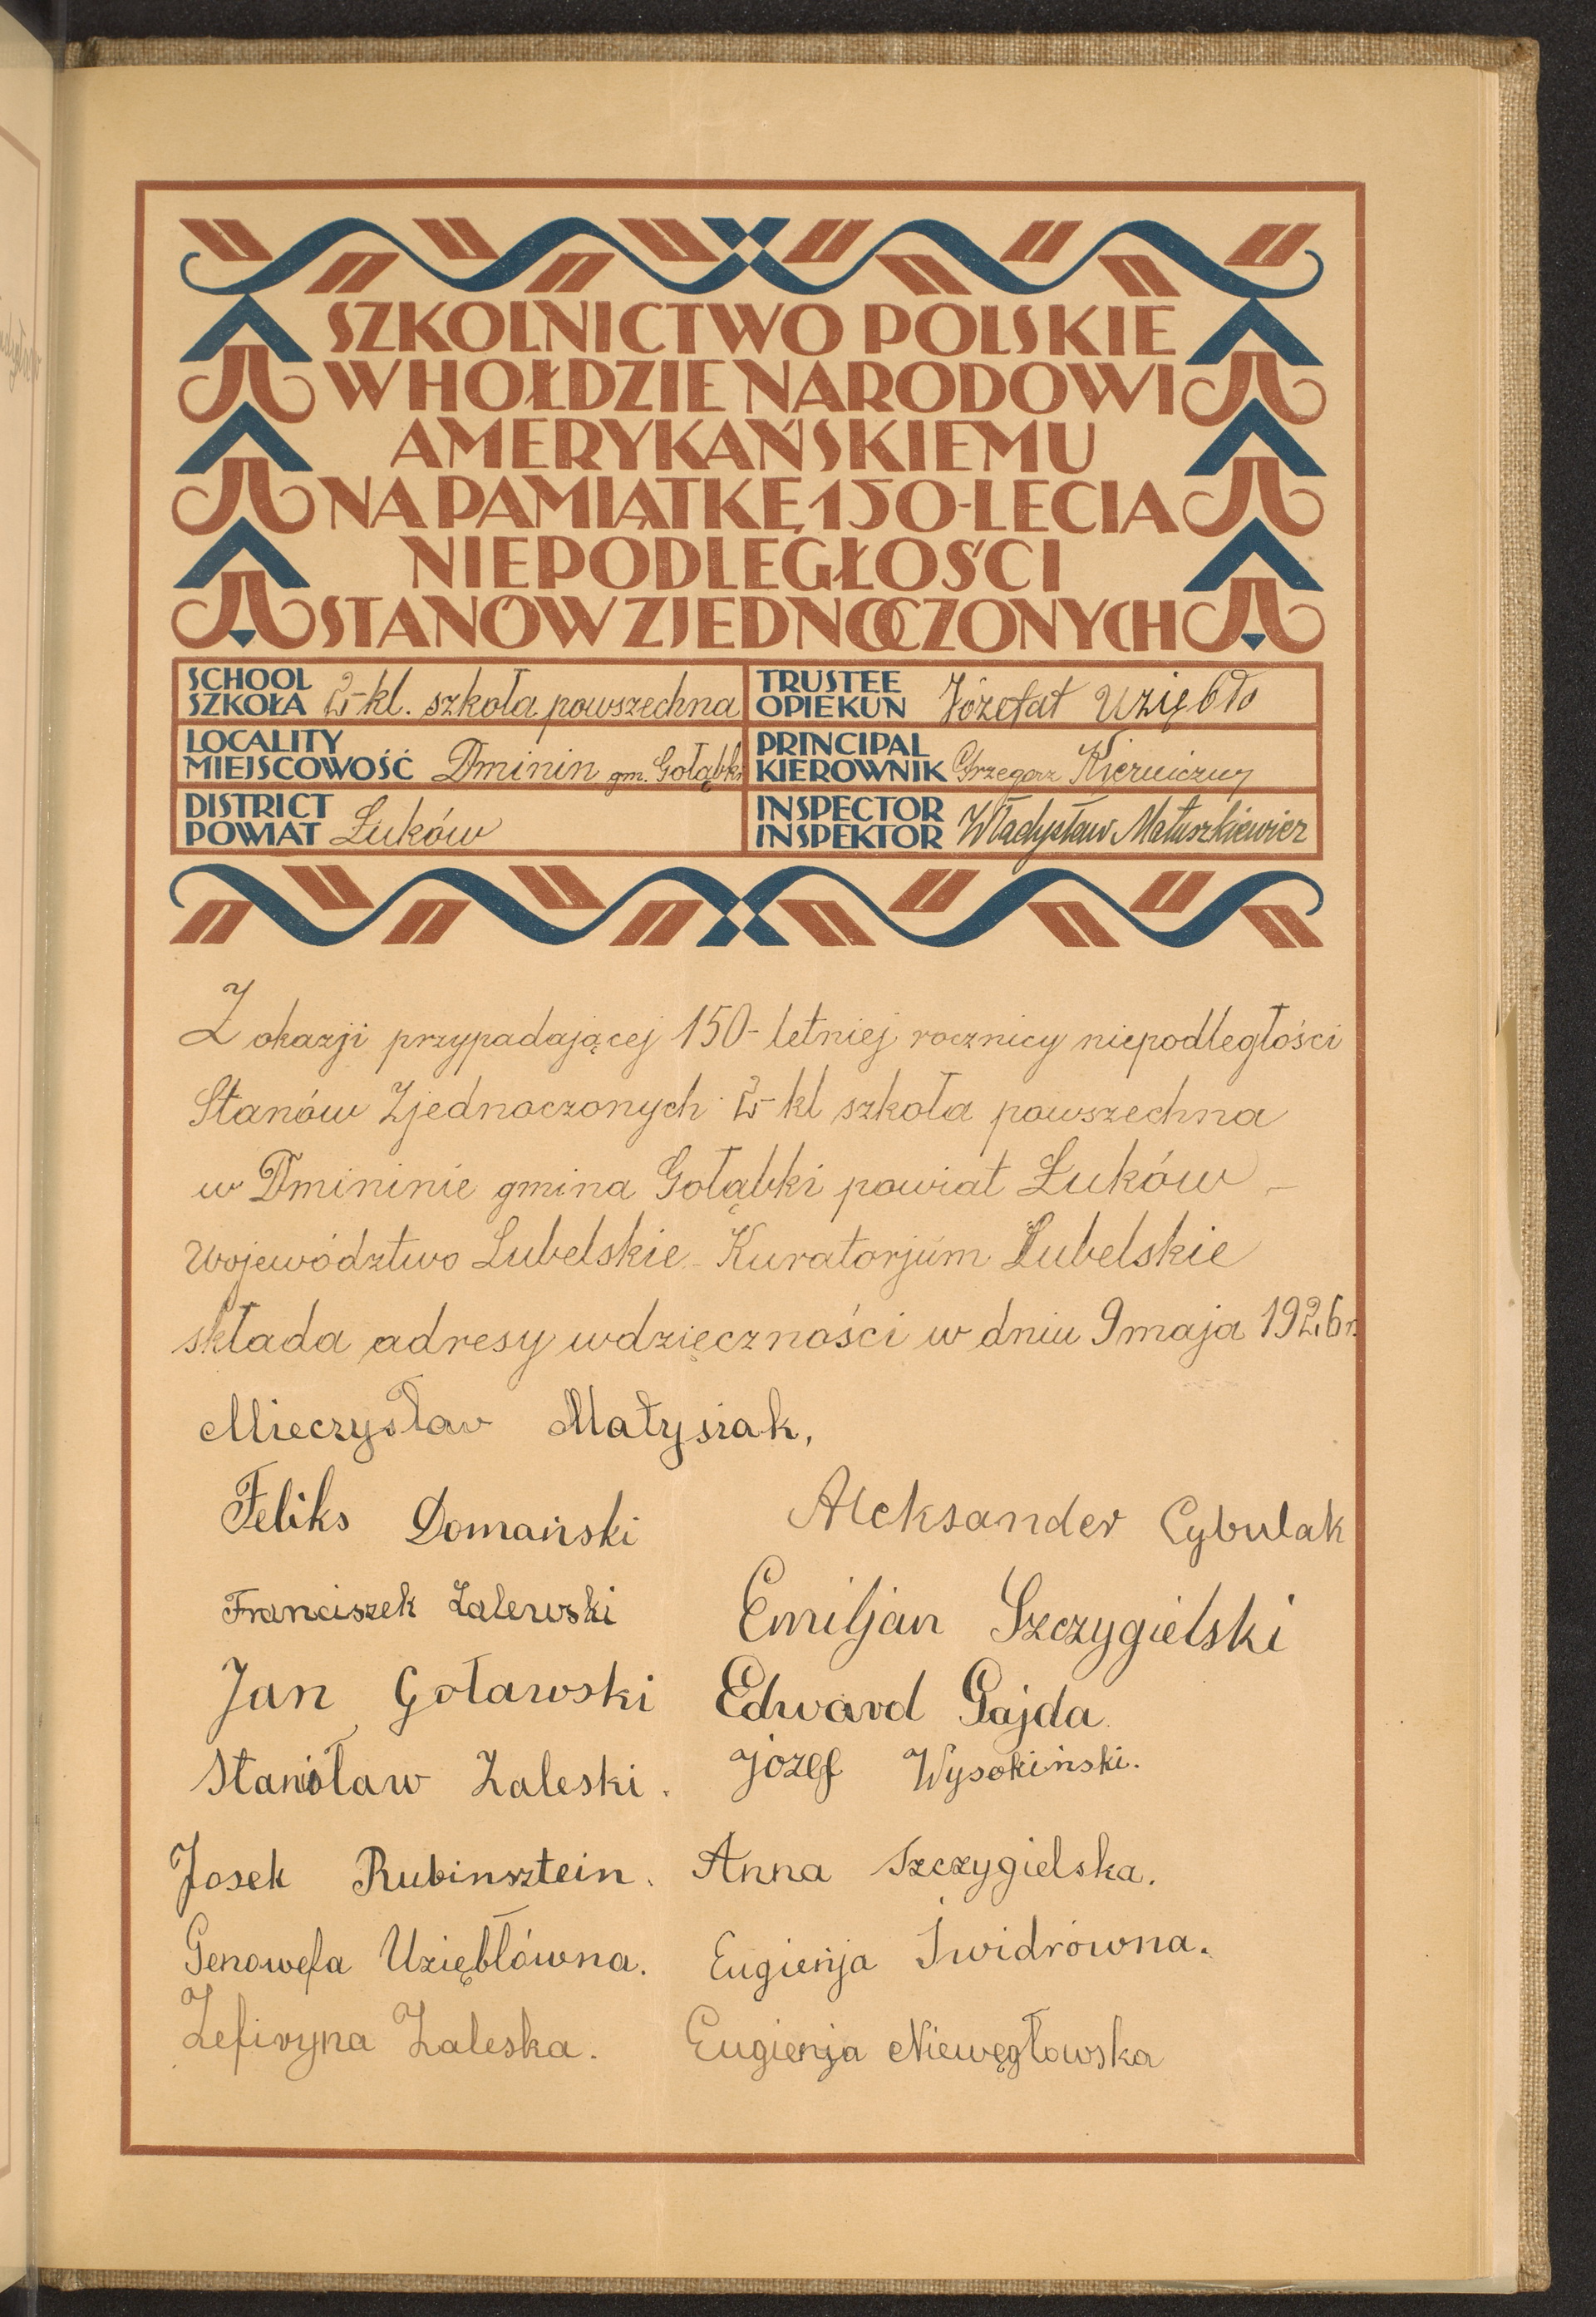 SZKOLNICTWO POLSKIE
W HOŁDZIE NARODOWI
AMERYKAŃSKIEMU
NA PAMIĄTKĘ 150-LECIA
NIEPODLEGŁOŚCI
STANÓW ZJEDNOCZONYCH
SCHOOL
SZKOŁA 2-kl. szkoła powszechna
TRUSTEE
OPIEKUN Józefat Uziębło
LOCALITY
MIEJSCOWOŚĆ Dminin gm. Gołąbki
PRINCIPAL
KIEROWNIK Grzegorz
DISTRICT
POWIAT Łuków
INSPECTOR
INSPEKTOR Władysław Matuszkiewicz
Z okazji przypadającej 150-letniej rocznicy niepodległości
Stanów Zjednoczonych 2-kl szkoła powszechna
w Dmininie gmina Gołąbki powiat Łuków –
województwo Lubelskie - Kuratorjum Lubelskie
składa adresy wdzięczności w dniu 9 maja 1926 r.
Mieczysław Matysiak,
Feliks Domański Aleksander Cybulak
Franciszek Zalewski Emiljan Szczygielski
Jan Goławski Edward Gajda
Stanisław Zaleski. józef Wysokiński.
Josek Rubinsztein. Anna Szczygielska.
Genowefa Uziębłówna. Eugienja Świdrówna.
Zefiryna Zaleska. Eugienja Niewęgłowska